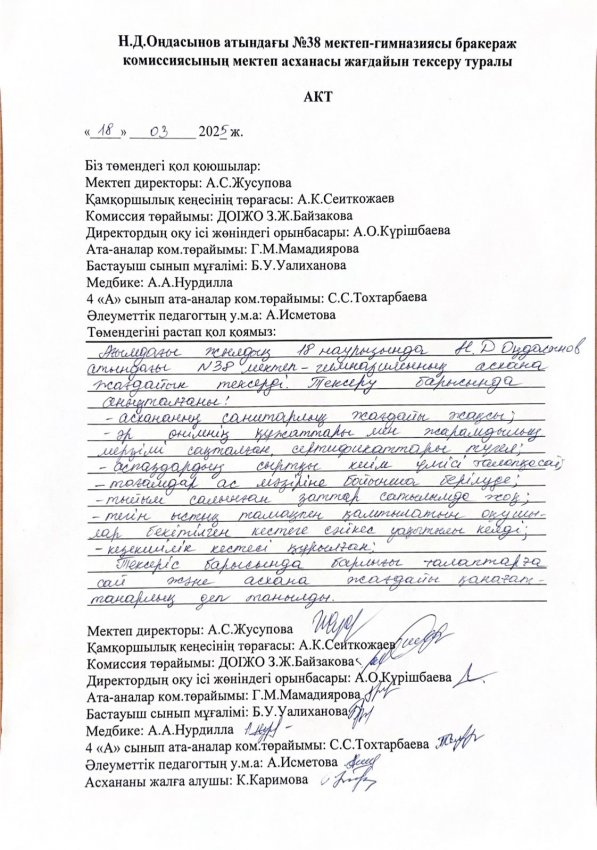 Н.Д.Оңдасынов атындағы №38 мектеп-гимназиясы бракераж
комиссиясының мектеп асханасы жағдайын тексеру туралы
АКТ
«18» 03 2025 ж.
Біз төмендегі қол қоюшылар:
Мектеп директоры: А.С.Жусупова
Қамқоршылық кеңесінің төрағасы: А.К.Сеиткожаев
Комиссия төрайымы: ДОІЖО З.Ж.Байзакова
Директордың оқу ісі жөніндегі орынбасары: А.О.Күрішбаева
Ата-аналар ком.төрайымы: Г.М.Мамадиярова
Бастауыш сынып мұғалімі: Б.У.Уалиханова
Медбике: А.А.Нурдилла
4 «А» сынып ата-аналар ком.төрайымы: С.С.Тохтарбаева
Әлеуметтік педагогтың у.м.а: А.Исметова
Төмендегіні растап қол қоямыз:
Ағымдағы жылдың 18 наурызында Н.Д Оңдасынов
атындағы N38 мектеп-гимназиясының асхана
жағдайын тексерді. Тексеру барысында
анықталғаны:
- асхананың санитарлық жағдайы жақсы;
- әр өнімнің құжаттары мен жарамдылық
мерзімі сақталған, сертификаттары түгел;
- аспаздардың сыртқы киім үлгісі талапқа сай
- тағамдар ас мәзіріне бойынша берілуде;
- тыйым салынған заттар сатылымда жоқ;
- тегін ыстық тамақпен қамтылатын оқушы-
лар бекітілген кестеге сәйкес уақытылы келді;
- кезекшілік кестесі құрылған;
Тексеріс барысында барлығы талаптарға
сай және асхана жағдайы қанағат-
танарлық деп танылды.
Мектеп директоры: А.С.Жусупова
Қамқоршылық кеңесінің төрағасы: А.К.Сеиткожаев
Комиссия төрайымы: ДОІЖО З.Ж.Байзакова
Директордың оқу ісі жөніндегі орынбасары: А.О.Күрішбаева
Ата-аналар ком.төрайымы: Г.М.Мамадиярова
Бастауыш сынып мұғалімі: Б.У.Уалиханова
Медбике: А.А.Нурдилла
4 «А» сынып ата-аналар ком.төрайымы: С.С.Тохтарбаева
Әлеуметтік педагогтың у.м.а: А.Исметова
Асхананы жалға алушы: К.Каримова